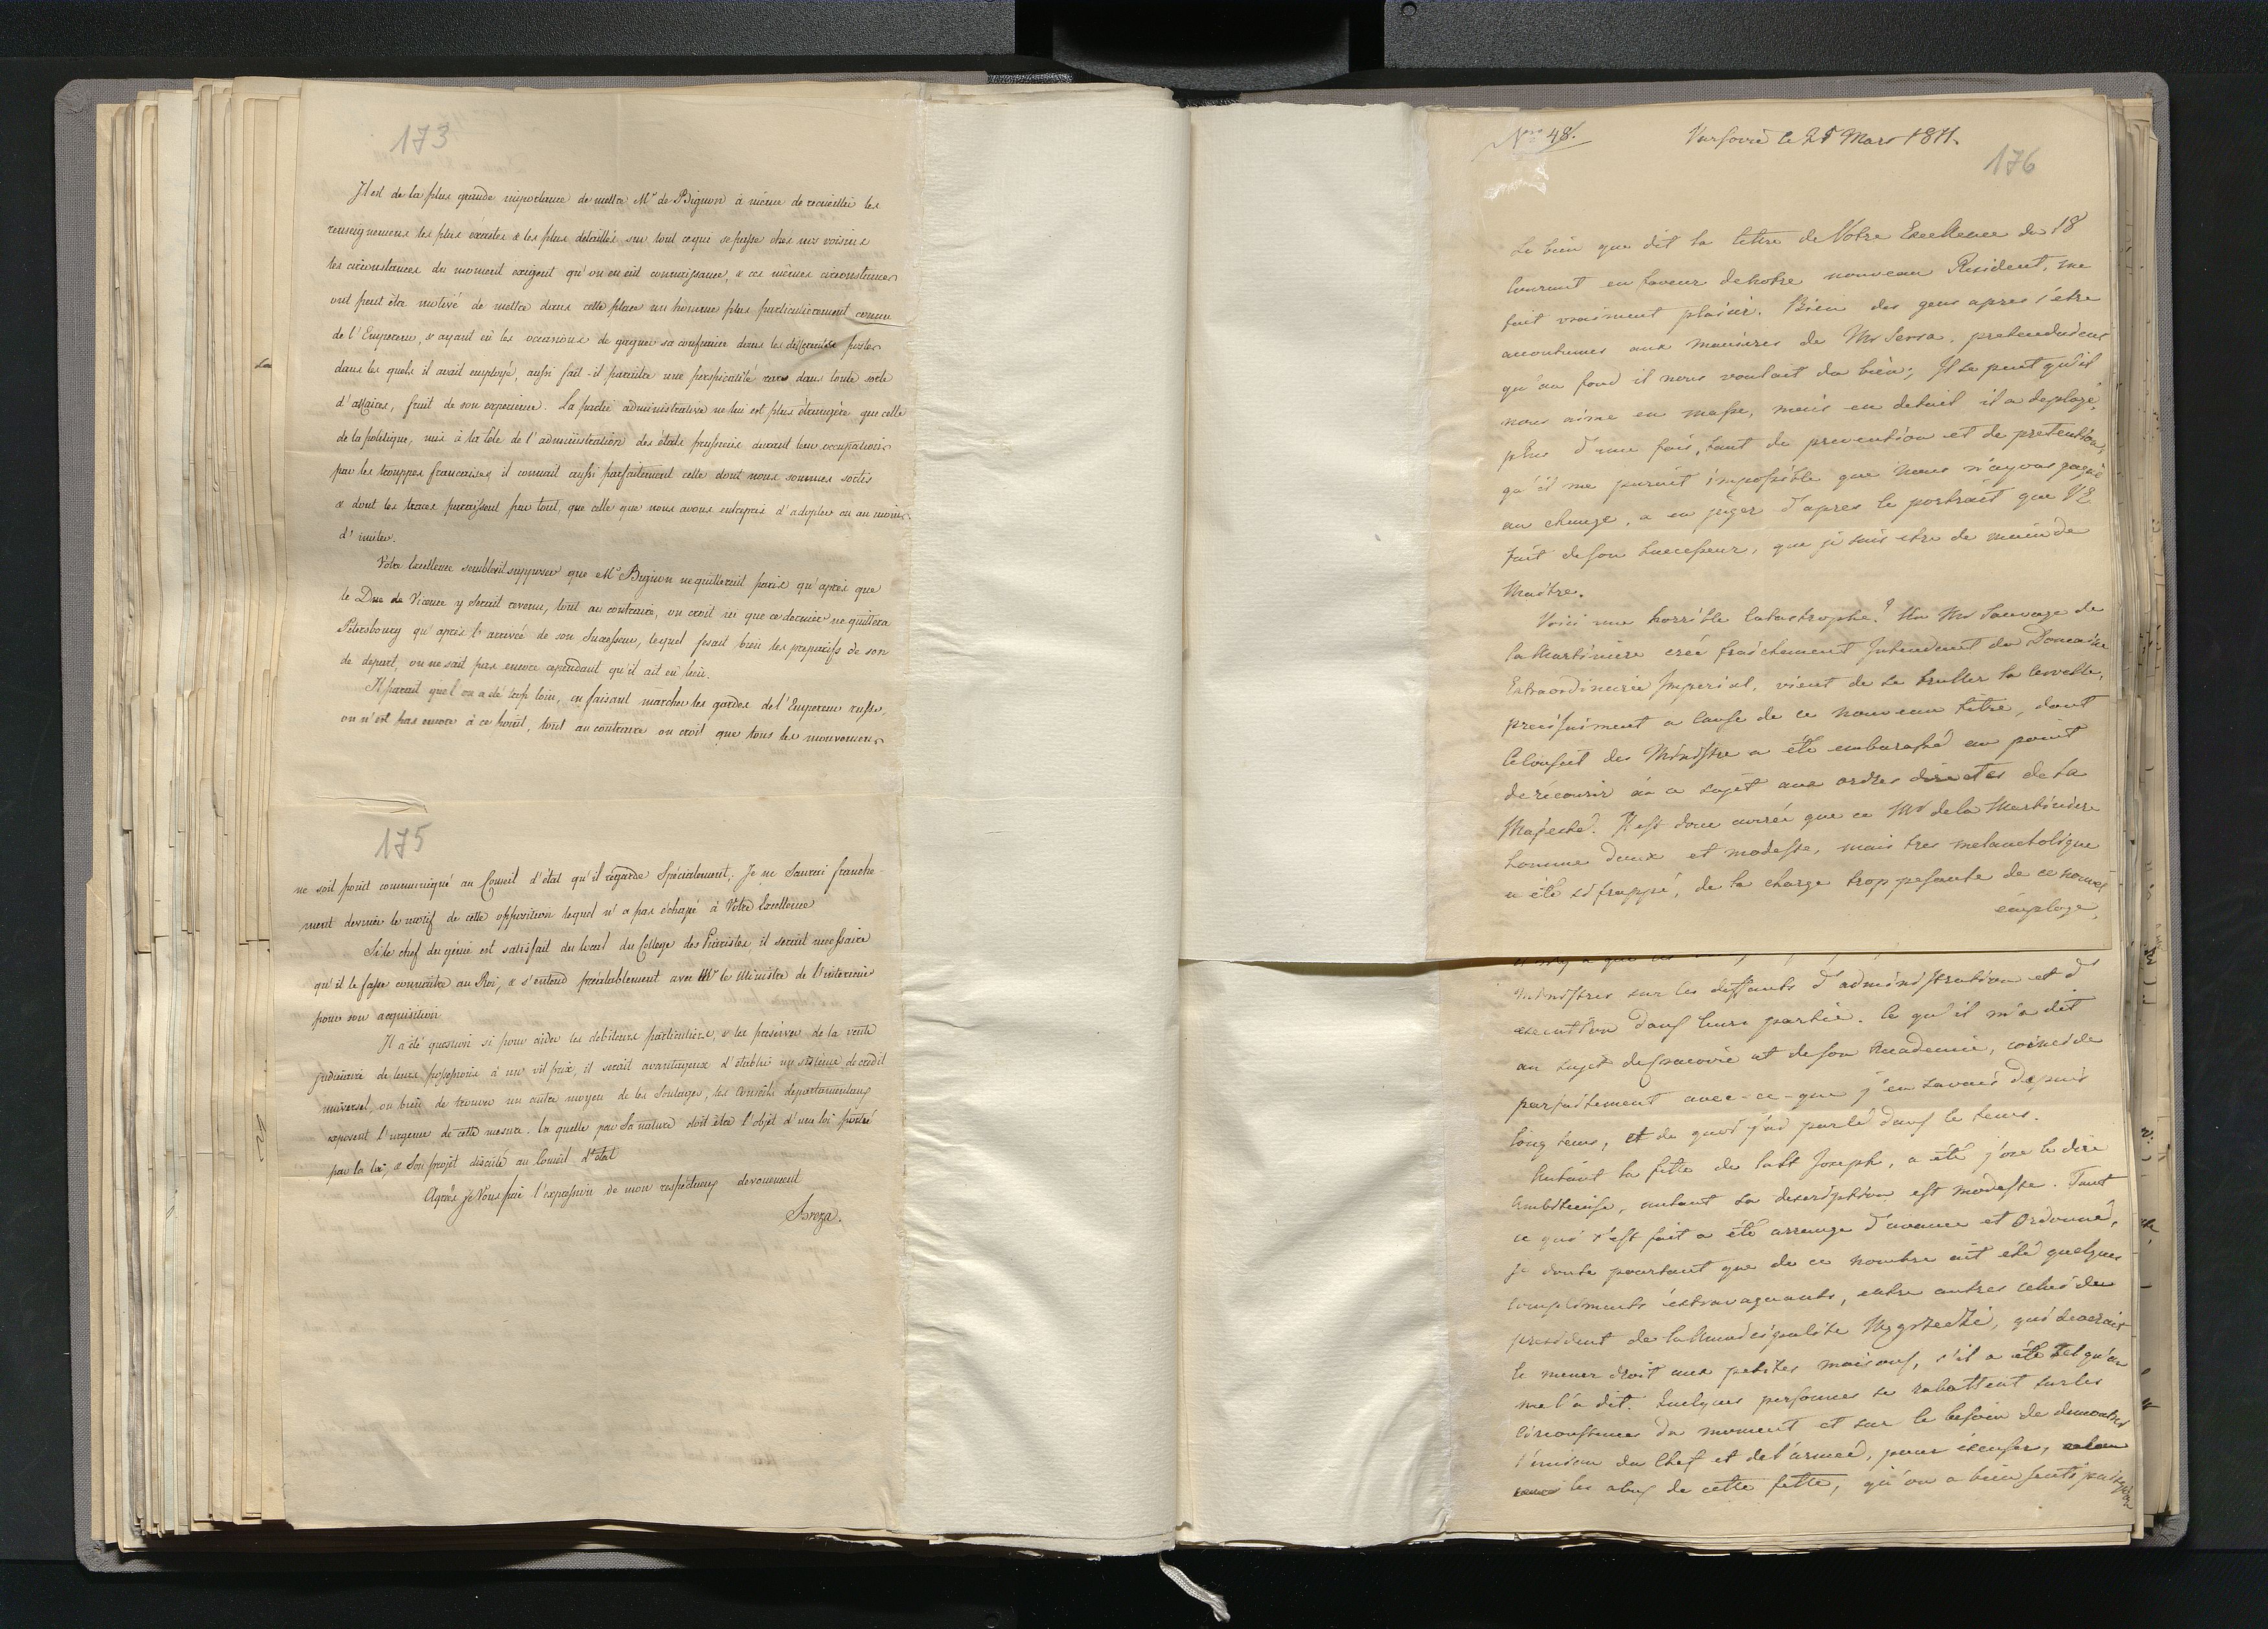 173
Il est de la plus grande importance de mettre Mr de Bignon à même de recueillir les
renseignemens les plus éxactes & les plus détaillés sur tout ce qui se passe chés nos voisins
les circonstances du moment exigent qu'on en eut connaissance, & ces mêmes circonstances
ont peut être motivé de mettre dans cette place un homme plus particulièrement connu
de l'Empereur, & ayant eû les occasions de gagner sa confiance dans les differentes postes
dans les quels il avait employé, aussi fait-il paraitre une perspicacité rare dans toute sorte
d'affaires, fruit de son experience. La partie administrative ne lui est plus étrangère que celle
de la politique, mis à la tête de l'administration des états prussiens durant leur occupation
par les trouppes francaises il connait aussi parfaitement celle dont nous sommes sortis
& dont les traces paraissent par tout, que celle que nous avons entrepris d'adopter ou au moins
d'imiter.
Votre Excellence semblait supposer que Mr Bignon ne quitterait paris qu'après que
le Duc de Vicence y serait revenu, tout au contraire, on croit ici que ce dernier ne quittera
Pétersbourg qu'après l'arrivée de son Successeur, lequel fesait bien les preparifs de son
de depart, on ne sait pas encore cependant qu'il ait eû lieu.
Il parait que l'on a été trop loin, en faisant marcher les gardes de l'Empereur russe,
on n'est pas encore à ce point, tout au contraire on croit que tous les mouvemens
175
ne soit point communiqué au Conseil d'état qu'il regarde Spécialement; Je ne Saurai franche-
ment deviner le motif de cette opposition lequel n'a pas échapé à Votre Excellence
Si le chef du génie est satisfait du local du College des Piaristes il serait necessaire
qu'il le fasse connaitre au Roi, & s'entend préalablement avec Mr le Ministre de l'intérieur
pour son acquisition
Il a été question si pour aider les débiteurs particuliers, & les preserver de la vente
judiciaire de leurs possessions à un vil prix, il serait avantageux d'etablir un sistème de credit
universel, ou bien de trouver un autre moyen de les Soulager, les Conseils departementaux
exposent l'urgence de cette mesure. la quelle par Sa nature doit être l'objet d'une loi porté
par la loi, & Son projet discuté au Conseil d'état
Agréés je Vous prie l'expression de mon respectueux devouement
Breza.
Nro 48.
Varsovie le 25 Mars 1811.
176
Le bien que dit la lettre de Votre Excellence du 18
Courant en faveur de notre nouveau Resident, me
fait vraiment plaisir. Bien des gens apres s'etre
accoutumes aux manieres de Mr Serra, pretendaient
qu'au fond il nous voulait du bien; Il se peut qu'il
nous aime en masse, mais en detail il a deployé,
plus d'une fois, tant de prevention et de pretention,
qu'il me parait impossible que nous n'ayons gagné
au change, a en juger d'apres le portrait que V E
fait de son Successeur, que je sais etre de main de
Maitre.
Voici une horrible Catastrophe! Un Mr Sauvage de
la Martiniere créé fraichement Intendent du Domaine
Extraordinaire Imperial, vient de se bruller la cervelle,
precisement a cause de ce nouveau titre, dont
le Conseil des Ministre a été embarassé au point
de récourir à ce sujet aux ordres directes de Sa
Majesté. Il est donc avéré que ce Mr de la Martiniere
homme doux et modeste, mais tres melancholique
a été si frappé, de la charge trop pesante de ce nouvel
employe,
Ministres sur les deffauts d'administration et d'
execution dans leurs partie. Ce qu'il m'a dit
au sujet de Cracovie et de son Academie, coincide
parfaitement avec-ce-que j'en savais depuis
long tems, et de quoi j'ai parlé dans le tems.
Autant la fette de Saft Joseph, a été j'ose le dire
Ambitieuse, autant sa description est modeste. Tout
ce qui s'est fait a été arrange d'avance et Ordonné,
je doute pourtant que de ce nombre ait été quelques
compliments extravaguants, entre autres celui du
president de la Municipalite Węgrzecki, qui devrait
le mener droit aux petites maisons, s'il a été tel qu'on
me l'a dit. Quelques personnes se rabattent sur les
Circonstances du moment et sur le besoin de demontrer
l'union du Chef et de l'armeé, pour excuser,
les abus de cette fette, qu'on a bien senti puisqu'on